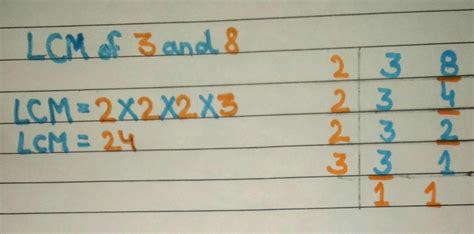 LCM of 3 and 8
LCM = 2×2×2×3
LCM = 24
2 3 8
2 3 4
2 3 2
3 3 1
1 1